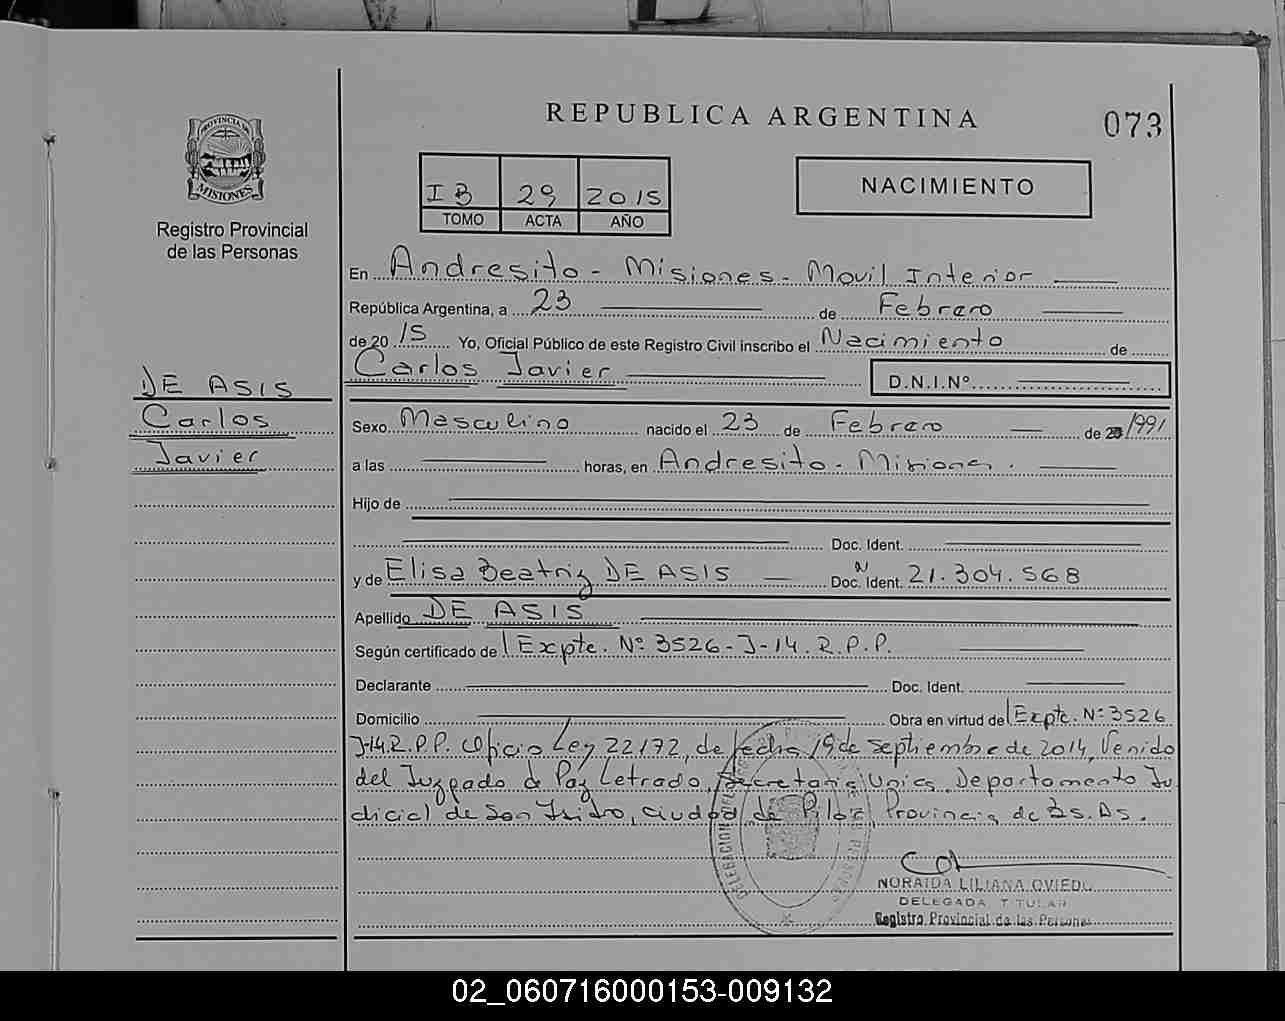 PROVINCIA
MISIONES
Registro Provincial
de las Personas
DE ASIS
Carlos
Javier
REPUBLICA ARGENTINA
073
IB 29 2015
TOMO ACTA AÑO
NACIMIENTO
En Andresito - Misiones - Movil Interior
República Argentina, a 23 de Febrero
de 2015 Yo, Oficial Público de este Registro Civil inscribo el Nacimiento de
Carlos Javier D.N.I.Nº
Sexo Masculino nacido el 23 de Febrero de 1991
a las horas, en Andresito - Misiones.
Hijo de
Doc. Ident.
y de Elisa Beatriz DE ASIS Doc. Ident. N 21.304.568
Apellido DE ASIS
Según certificado de Expte. Nº 3526-J-14.R.P.P.
Declarante Doc. Ident.
Domicilio Obra en virtud de Expte. Nº 3526
J-14.R.P.P. Oficio Ley 22172, de fecha 19 de septiembre de 2014, Venido
del Juzgado de Paz Letrado, Secretaria Unica, Departamento Ju
dicial de San Isidro, ciudad de Pilar, Provincia de Bs. As.
NORAIDA LILIANA OVIEDO
DELEGADA TITULAR
Registro Provincial de las Personas
02_060716000153-009132